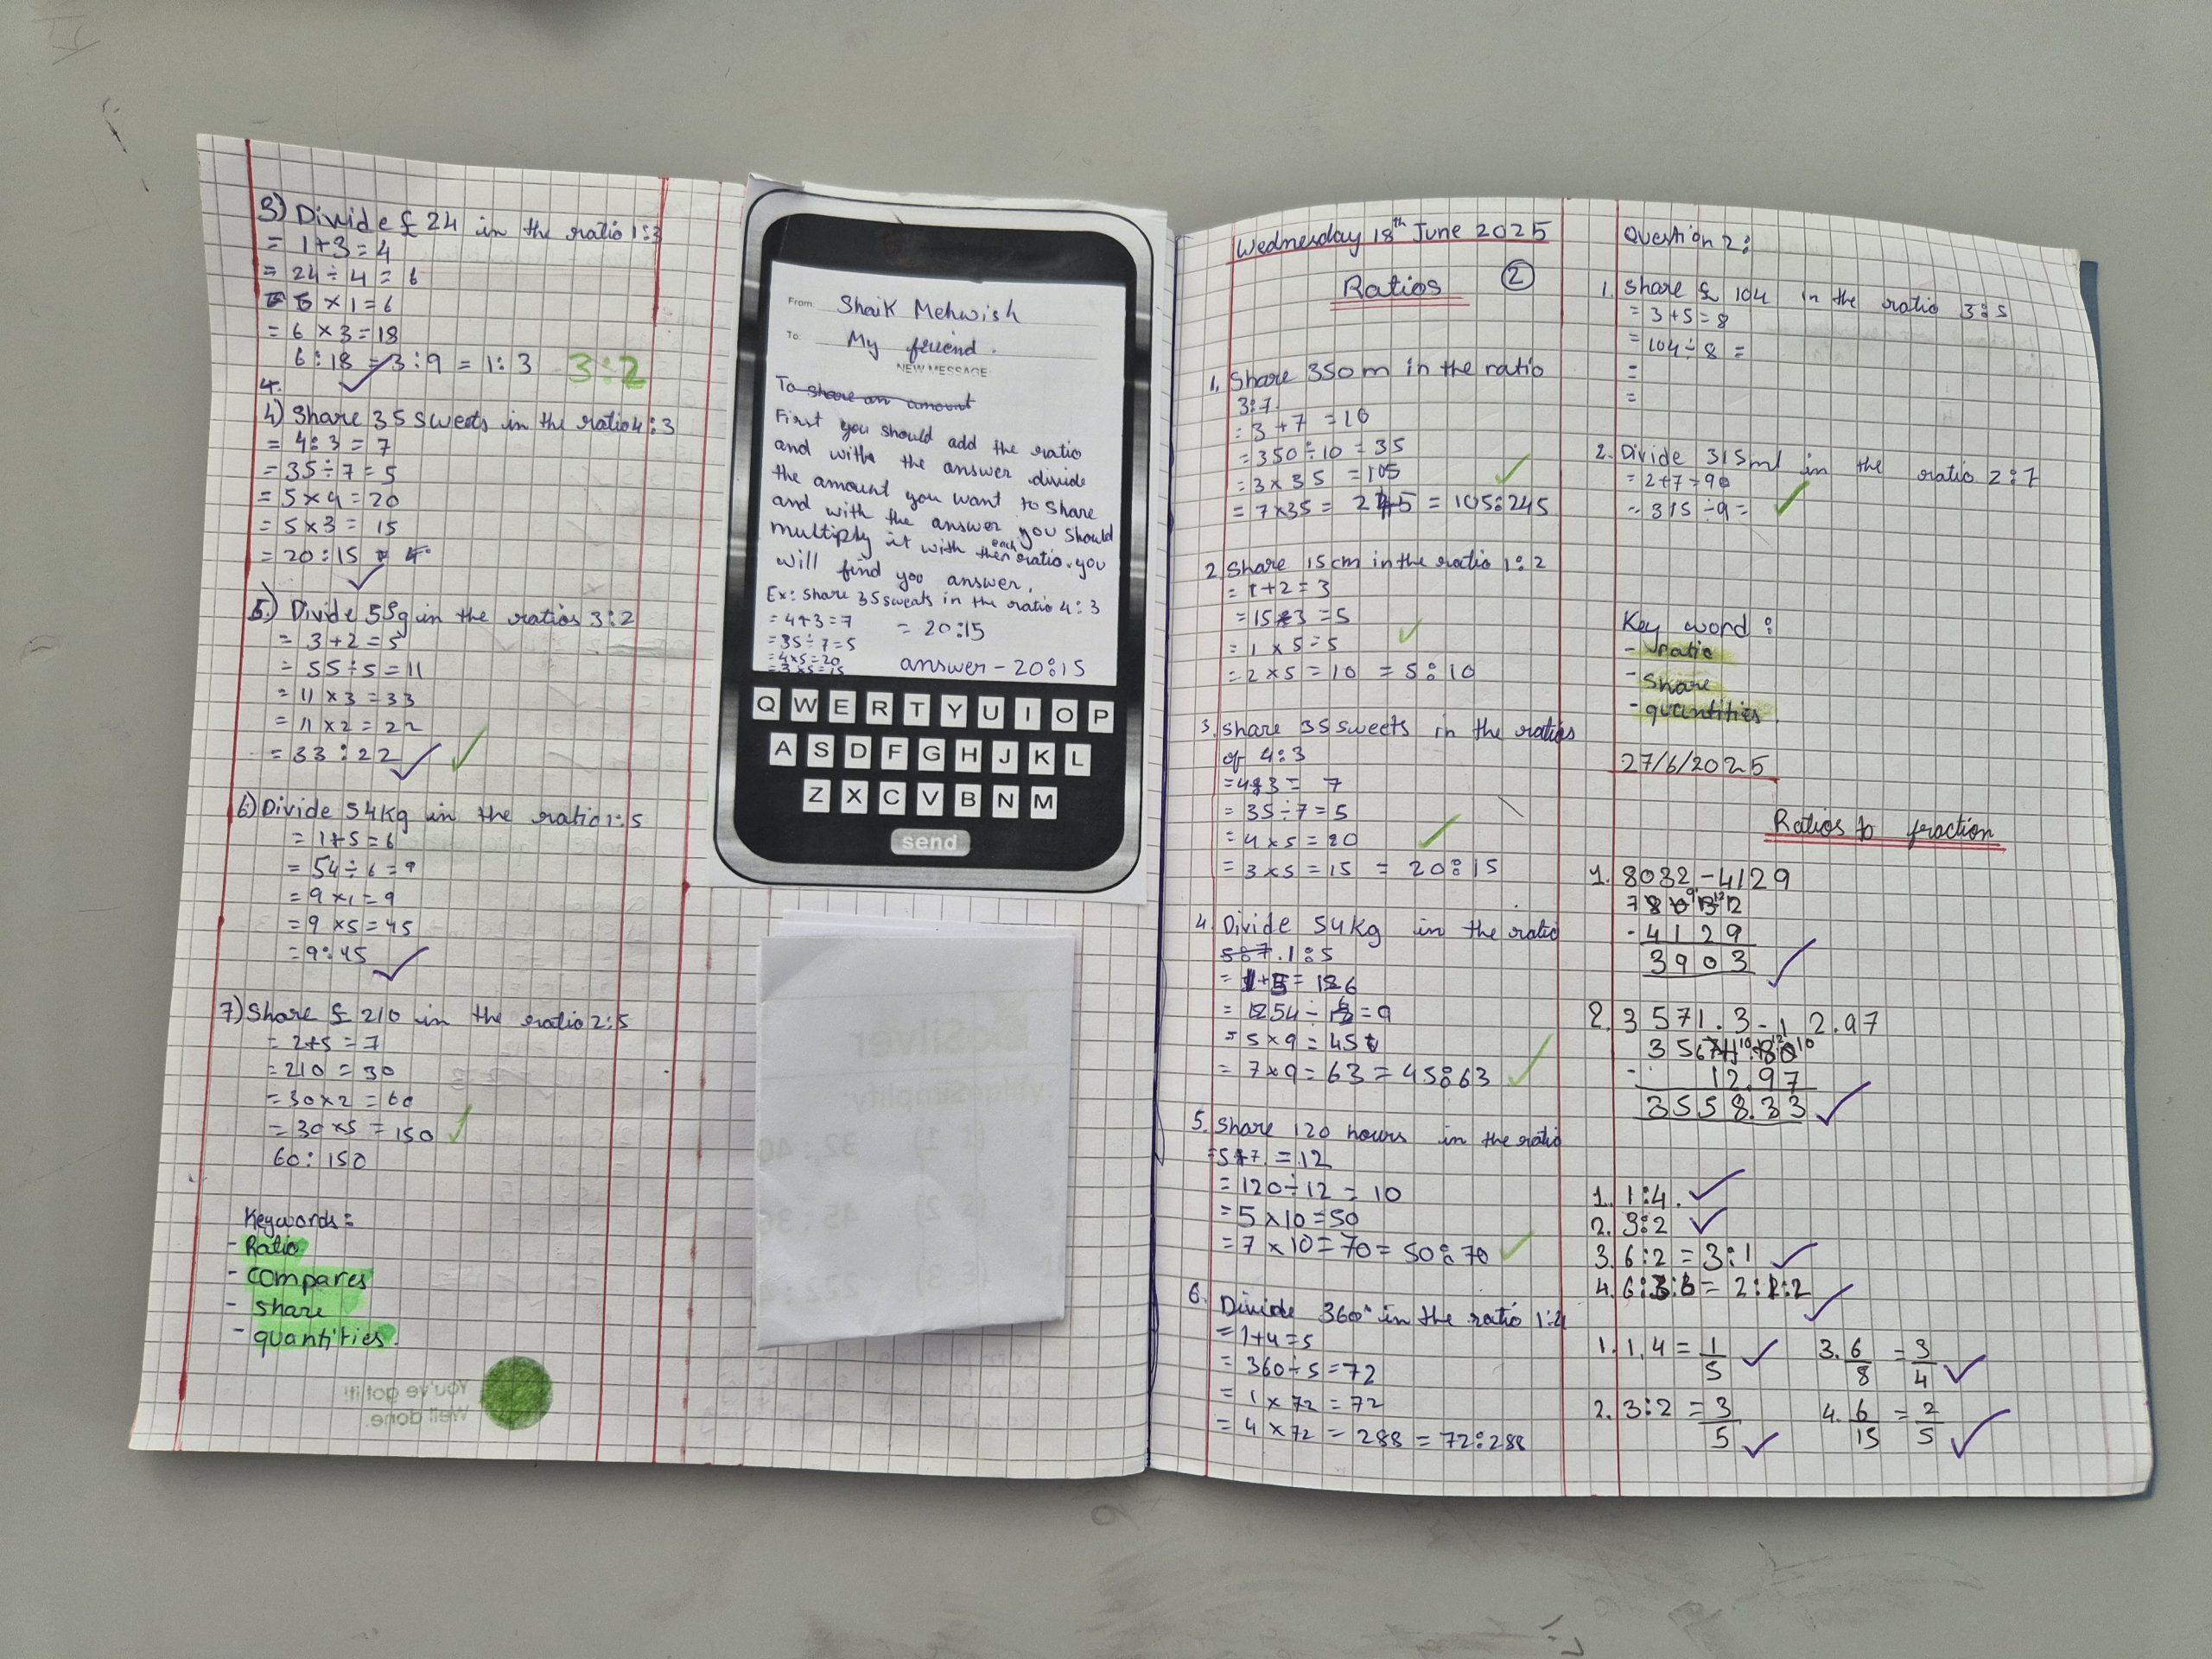 3) Divide £ 24 in the ratio 1:3
= 1+3=4
= 24÷4 = 6
= 6 ×1=6
= 6 ×3=18
6:18 = 3:9 = 1:3 3:2
4.
4) Share 35 sweets in the ratio 4:3
= 4:3 = 7
= 35÷7=5
= 5×4=20
= 5×3= 15
= 20:15
5.) Divide 55g in the ratios 3:2
= 3+2=5
= 55÷5=11
= 11 ×3 =33
= 11 ×2= 22
= 33:22
6) Divide 54kg in the ratio 1:5
= 1+5=6
= 54÷6=9
= 9 ×1=9
= 9 ×5=45
= 9:45
7) Share £ 210 in the ratio 2:5
= 2+5 =7
= 210 = 30
= 30×2 = 60
= 30×5 = 150
60:150
Keywords:
- Ratio
- compares
- share
- quantities.
You've got it!
Well done.
From: Shaik Mehwish
To: My friend.
NEW MESSAGE
To share an amount
First you should add the ratio
and with the answer divide
the amount you want to share
and with the answer you should
multiply it with each ratio. you
will find you answer.
Ex: Share 35 sweats in the ratio 4:3
= 4+3=7 = 20:15
= 35÷7=5
= 4×5=20
= 3×5=15 answer - 20:15
Q W E R T Y U I O P
A S D F G H J K L
Z X C V B N M
send
Wednesday 18th June 2025
Ratios 2
1. Share 350m in the ratio
3:7.
= 3+7 =10
= 350÷10 = 35
= 3×35 =105
= 7×35 = 245 = 105:245
2. Share 15cm in the ratio 1:2
= 1+2=3
= 15÷3 =5
= 1 ×5=5
= 2×5=10 = 5:10
3. share 35 sweets in the ratios
of 4:3
= 4:3 = 7
= 35÷7=5
= 4×5=20
= 3×5=15 = 20:15
4. Divide 54kg in the ratio
5:7. 1:5
= 1+5= 6
= 54÷6=9
= 5×9=45
= 7×9=63 = 45:63
5. Share 120 hours in the ratio
= 5+7 = 12
= 120÷12 = 10
= 5×10=50
= 7 ×10=70 = 50:70
6. Divide 360° in the ratio 1:4
= 1+4=5
= 360÷5=72
= 1 ×72=72
= 4 ×72 = 288 = 72:288
Question 2:
1. Share £ 104 in the ratio 3:5
= 3+5=8
= 104÷8 =
=
=
2. Divide 315ml in the ratio 2:7
= 2+7=9
= 315÷9=
Key word:
- ratio
- share
- quantities.
27/6/2025
Ratios to fraction
1. 8032-4129
- 4129
3903
2. 3571.3-12.97
- 12.97
3558.33
1. 1:4.
2. 3:2
3. 6:2 = 3:1
4. 6:3:6 = 2:1:2
1. 1,4 = 1/5 3. 6/8 = 3/4
2. 3:2 = 3/5 4. 6/15 = 2/5